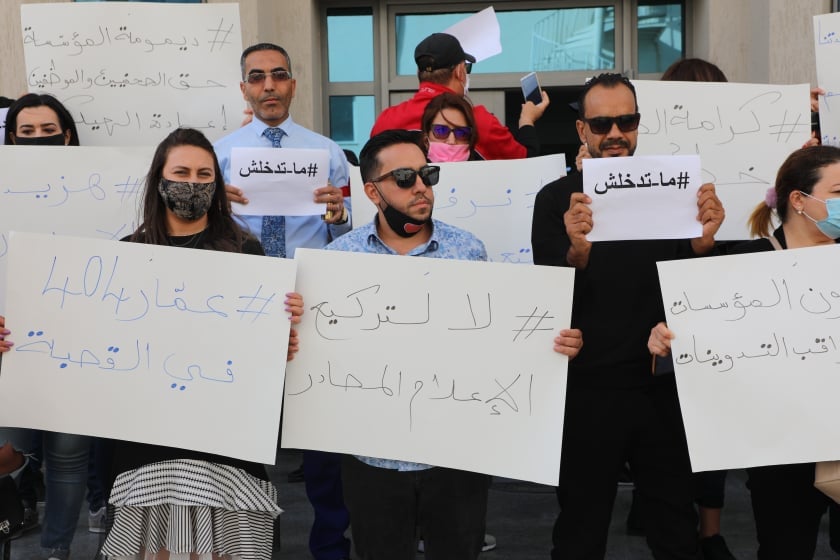 #ديمومة المؤسسة
حق الصحفيين والموظفين
إعادة الهيك
#ما-تدخلش
#ما-تدخلش
#كرامة
#هزيد
#نرف
#عمّار404
في القصبة
#لا لتركيع
الإعلام المصادر
ون المؤسسات
اقب التدوينات